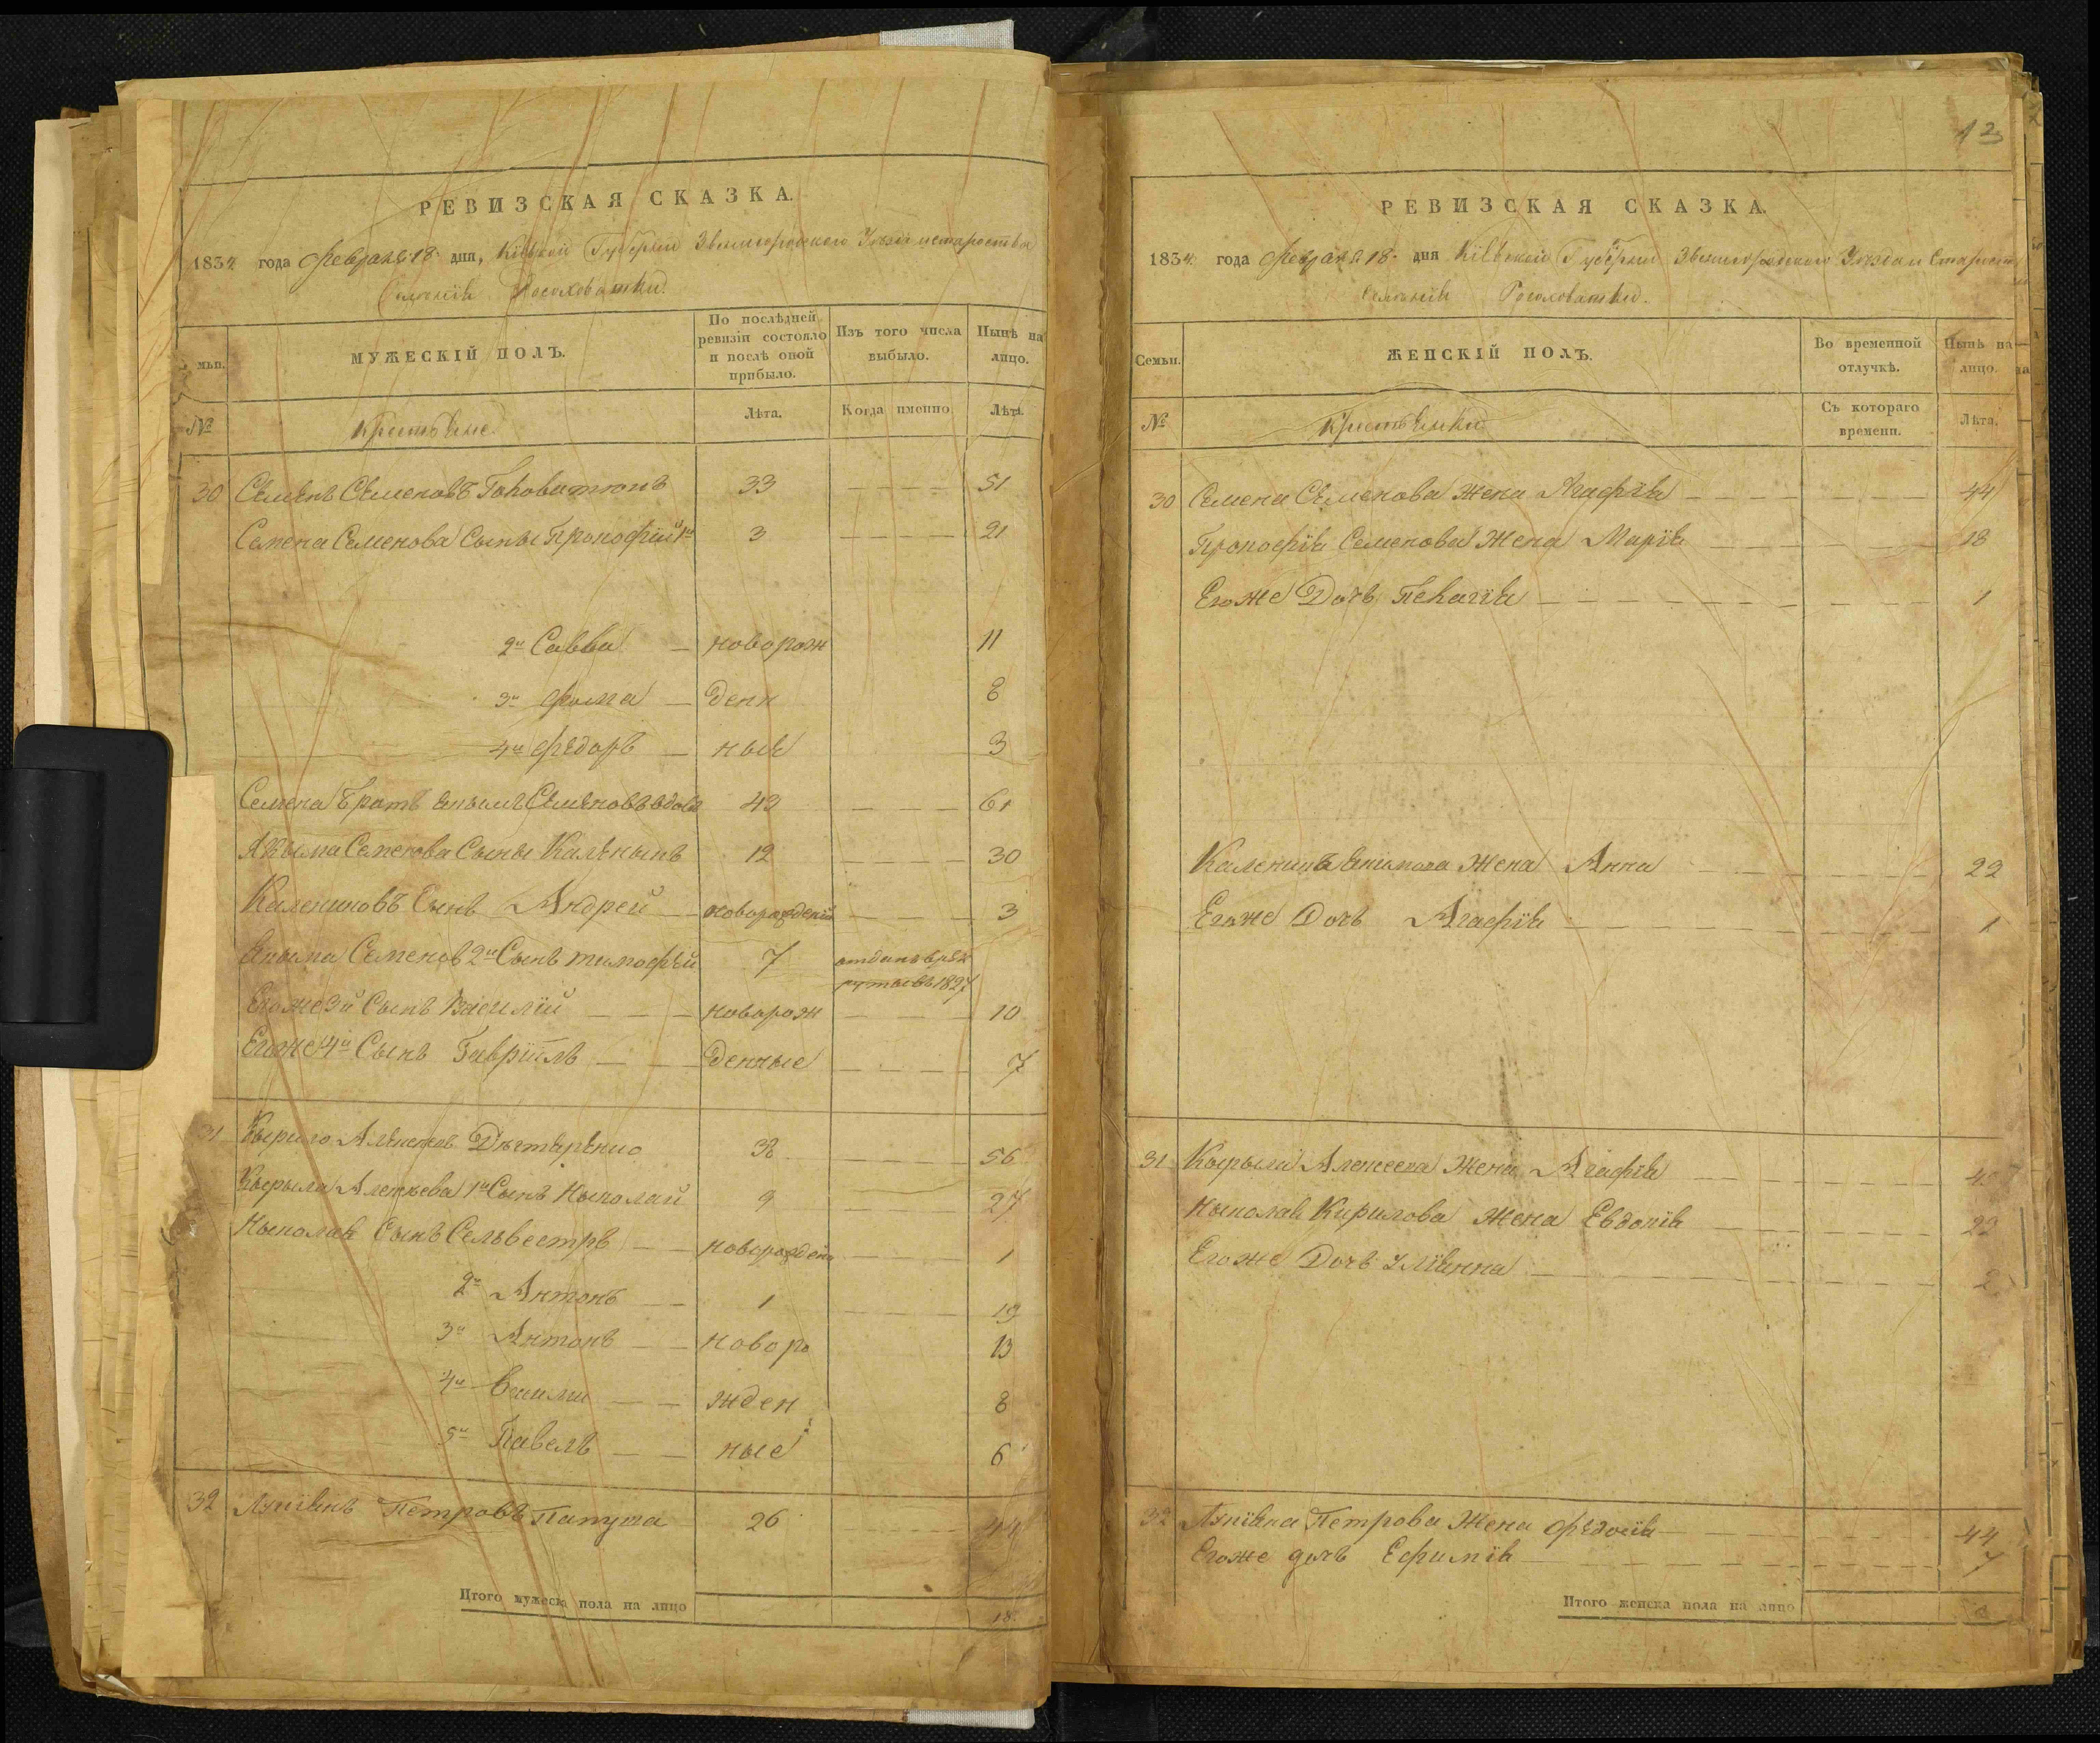 РЕВИЗСКАЯ СКАЗКА.
1834 года Февраля 18 дня, Кіевской Губерніи Звенигородского Уезда и староства
Селенія Рососховатки.
мьи.
МУЖЕСКІЙ ПОЛЪ.
По послѣдней ревизіи состояло и послѣ оной прибыло.
Изъ того числа выбыло.
Нынѣ на лицо.
№
Крестьяне.
Лѣта.
Когда именно.
Лѣта.
30 Семенъ Семеновъ 33 51
Семена Семенова Сыны Прокофій 1й 3 21
2й Савва новорож 11
3й Фома денн 8
4й Федоръ ные 3
Семена Братъ Якымъ Семеновъ вдовъ 43 61
Якыма Семенова Сыны Каленыкъ 12 30
Калениковъ Сынъ Андрей новорожденій 3
Якыма Семенов 2й Сынъ Тимофѣй 7 отданъ врек
рутысвъ 1827
Егоже 3й Сынъ Василій новорож 10
Егоже 4й Сынъ Гавріилъ денные 7
31 Кырило Алексеев Дѣхтяренко 38 56
Кырыла Алексѣева 1й Сынъ Ныколай 9 27
Ныколая Сынъ Селвестръ новорожден 1
2й Антонъ 1 19
3й Антонъ новоро 13
4й Васили жден 8
5й Павелъ ные 6
32 Лукіянъ Петровъ Папуша 26 44
Итого мужеска пола на лицо 18
13
РЕВИЗСКАЯ СКАЗКА.
1834 года Февраля 18 дня Кіевской Губерніи Звенигородского Уезда и Старост
Селенія Росоховатки.
Семьи.
ЖЕНСКІЙ ПОЛЪ.
Во временной отлучкѣ.
Нынѣ на лицо.
№
Крестьянки
Съ котораго времени.
Лѣта.
30 Семена Семенова Жена Агафія 44
Прокофія Семенова Жена Марія 18
Егоже Дочь Пелагія 1
Каленика Якимова Жена Анна 22
Егоже Дочь Агафія 1
31 Кырыла Алексеева Жена Агафія
Ныколая Кирилова Жена Евдокія 22
Егоже Дочь Уліянна 2
32 Лукіяна Петрова Жена Федосія 44
Егоже дочь Ефимія 7
Итого женска пола на лицо